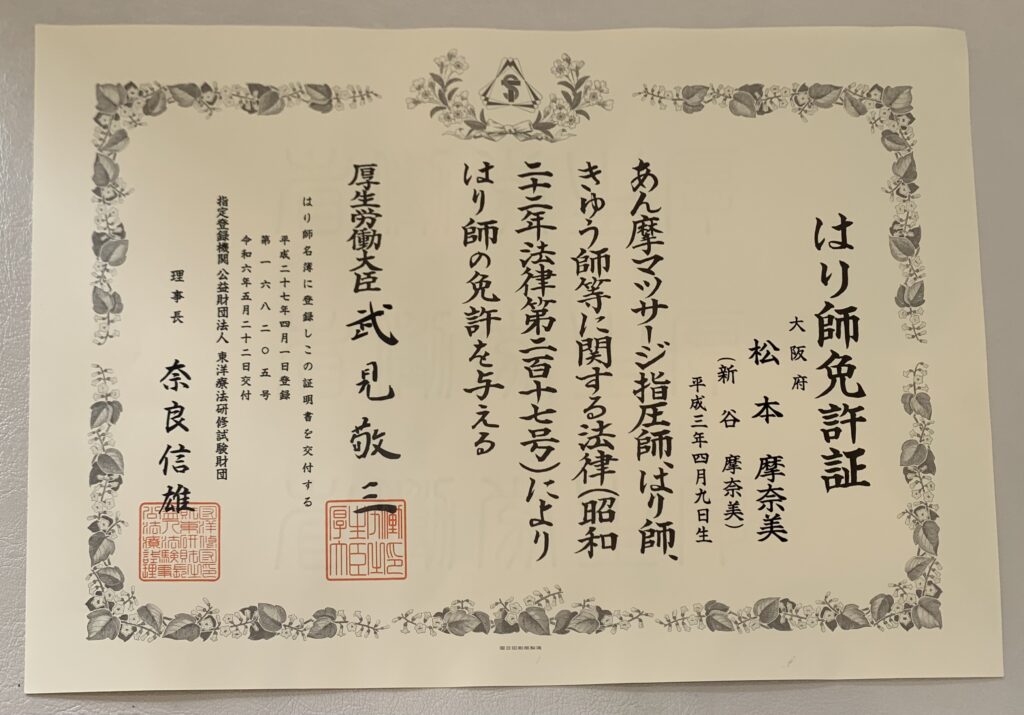 はり師免許証
大阪府
松本 摩奈美
(新谷 摩奈美)
平成三年四月九日生
あん摩マツサージ指圧師、はり師、
きゆう師等に関する法律(昭和
二十二年法律第二百十七号)により
はり師の免許を与える
厚生労働大臣 武見敬三
はり師名簿に登録しこの証明書を交付する
平成二十七年四月一日登録
第一六八二〇五号
令和六年五月二十二日交付
指定登録機関 公益財団法人 東洋療法研修試験財団
理事長 奈良信雄